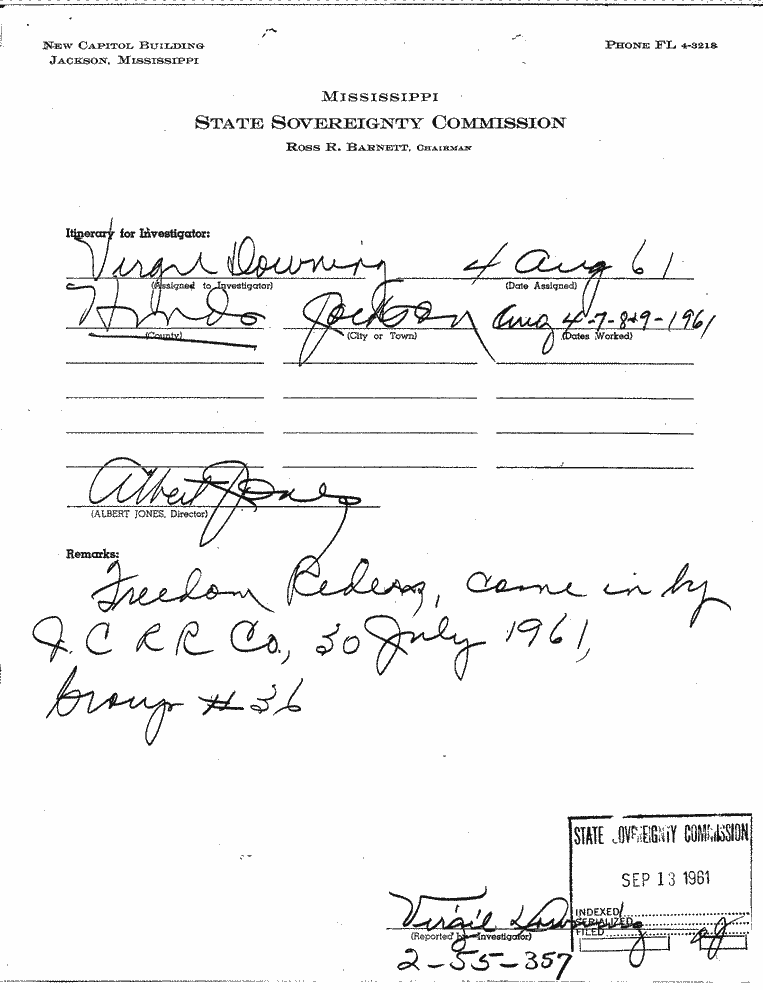 NEW CAPITOL BUILDING
JACKSON, MISSISSIPPI
PHONE FL 4-3218
MISSISSIPPI
STATE SOVEREIGNTY COMMISSION
ROSS R. BARNETT, CHAIRMAN
Itinerary for Investigator:
Virgil Downing 4 Aug 61
(Assigned to Investigator) (Date Assigned)
Hinds Jackson Aug 4-7-8+9-1961
(County) (City or Town) (Dates Worked)
Albert Jones
(ALBERT JONES, Director)
Remarks:
Freedom Riders, came in by
I.C R R Co., 30 July 1961,
Group #36
STATE SOVEREIGNTY COMMISSION
SEP 13 1961
INDEXED
SERIALIZED
FILED
Virgil Downing
(Reported by Investigator)
2-55-357